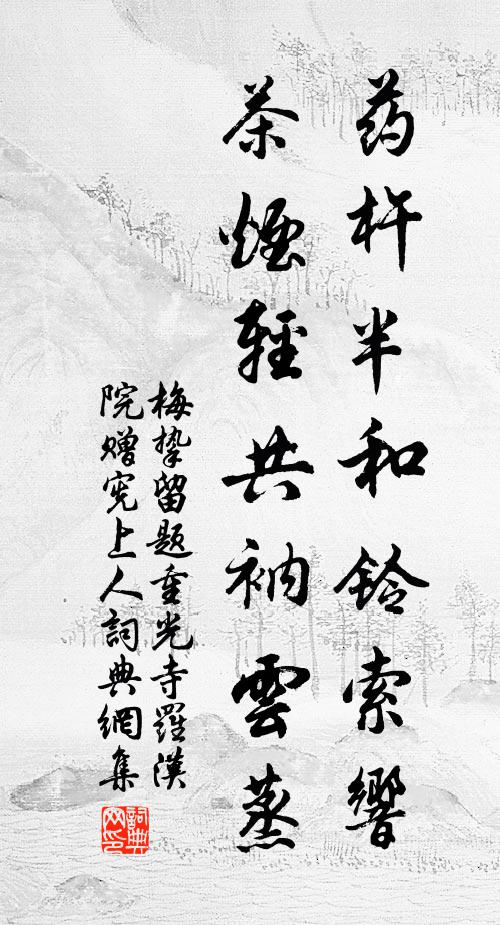 药杵半和鈴索響
茶煙輕共衲雲蒸
梅挚留题重光寺羅漢
院赠宪上人詞典網集
詞典
网印